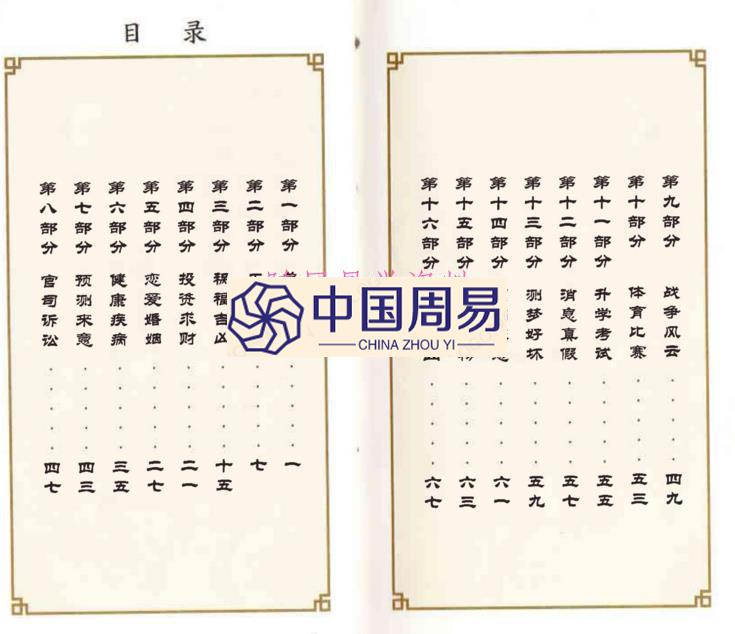 目录
第一部分 · · · · · 一
第二部分 · · · · · 七
第三部分 祸福吉凶 · · · · · 十五
第四部分 投资求财 · · · · · 二一
第五部分 恋爱婚姻 · · · · · 二七
第六部分 健康疾病 · · · · · 三五
第七部分 预测来意 · · · · · 四三
第八部分 官司诉讼 · · · · · 四七
第九部分 战争风云 · · · · · 四九
第十部分 体育比赛 · · · · · 五三
第十一部分 升学考试 · · · · · 五五
第十二部分 消息真假 · · · · · 五七
第十三部分 测梦好坏 · · · · · 五九
第十四部分 · · · · · 六一
第十五部分 · · · · · 六三
第十六部分 · · · · · 六七
中国周易
CHINA ZHOU YI